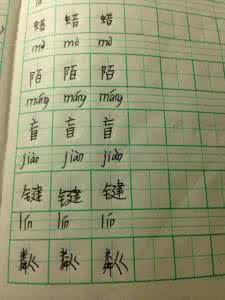 蜡 蜡 蜡
mò mò mò
陌 陌 陌
máng máng máng
盲 盲 盲
jiàn jiàn jiàn
键 键 键
lín lín lín
粼 粼 粼